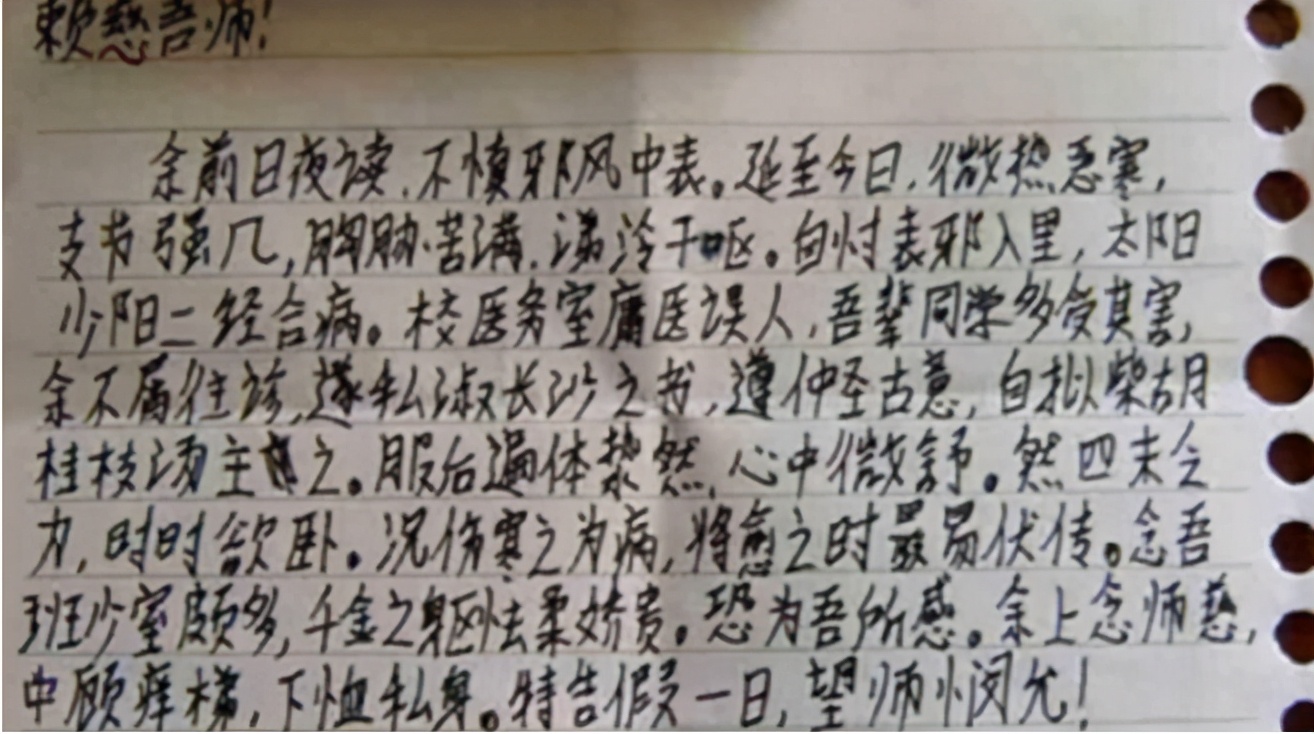 赖慈吾师！
余前日夜读，不慎邪风中表。延至今日，微热恶寒，
支节强几，胸胁苦满，涕泠干呕。自忖表邪入里，太阳
少阳二经合病。校医务室庸医误人，吾辈同学多受其害，
余不屑往诊，遂私淑长沙之书，遵仲圣古意，自拟柴胡
桂枝汤主之。服后遍体漐然，心中微舒。然四末乏
力，时时欲卧。况伤寒之为病，将愈之时最易伏传。念吾
班少室颇多，千金之躯怯柔娇贵。恐为吾所感。余上念师慈，
中顾 下恤私身。特告假一日，望师悯允！